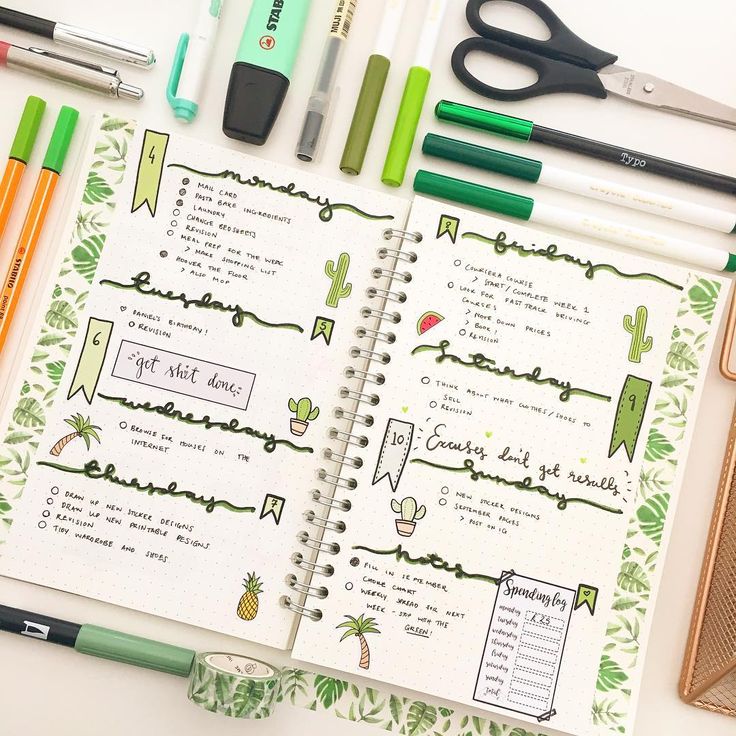 STABILO
MUJI
Typo
STABILO
A
4
monday
MAIL CARD
PASTA BAKE INGREDIENTS
LAUNDRY
CHANGE BEDSHEETS
REVISION
MEAL PREP FOR THE WEEK
> MAKE SHOPPING LIST
HOOVER THE FLOOR
> ALSO MOP
tuesday
5
DANIEL'S BIRTHDAY!
REVISION
6
get sh*t done
wednesday
BROWSE FOR HOUSES ON THE
INTERNET
thursday
7
DRAW UP NEW STICKER DESIGNS
DRAW UP NEW PRINTABLE DESIGNS
REVISION
TIDY WARDROBE AND SHOES
friday
COURSERA COURSE
> START/COMPLETE WEEK 1
LOOK FOR FAST TRACK DRIVING
COURSES
> NOTE DOWN PRICES
> BOOK!
REVISION
saturday
9
THINK ABOUT WHAT CLOTHES/SHOES TO
SELL
REVISION
10
Excuses don't get results
sunday
NEW STICKER DESIGNS
SEPTEMBER PAGES
> POST ON IG
notes
FILL IN
CHORE CHART
WEEKLY SPREAD FOR NEXT
WEEK - STOP WITH THE
GREEN!
Spending log
monday
tuesday
wednesday
thursday
friday
saturday
sunday
total